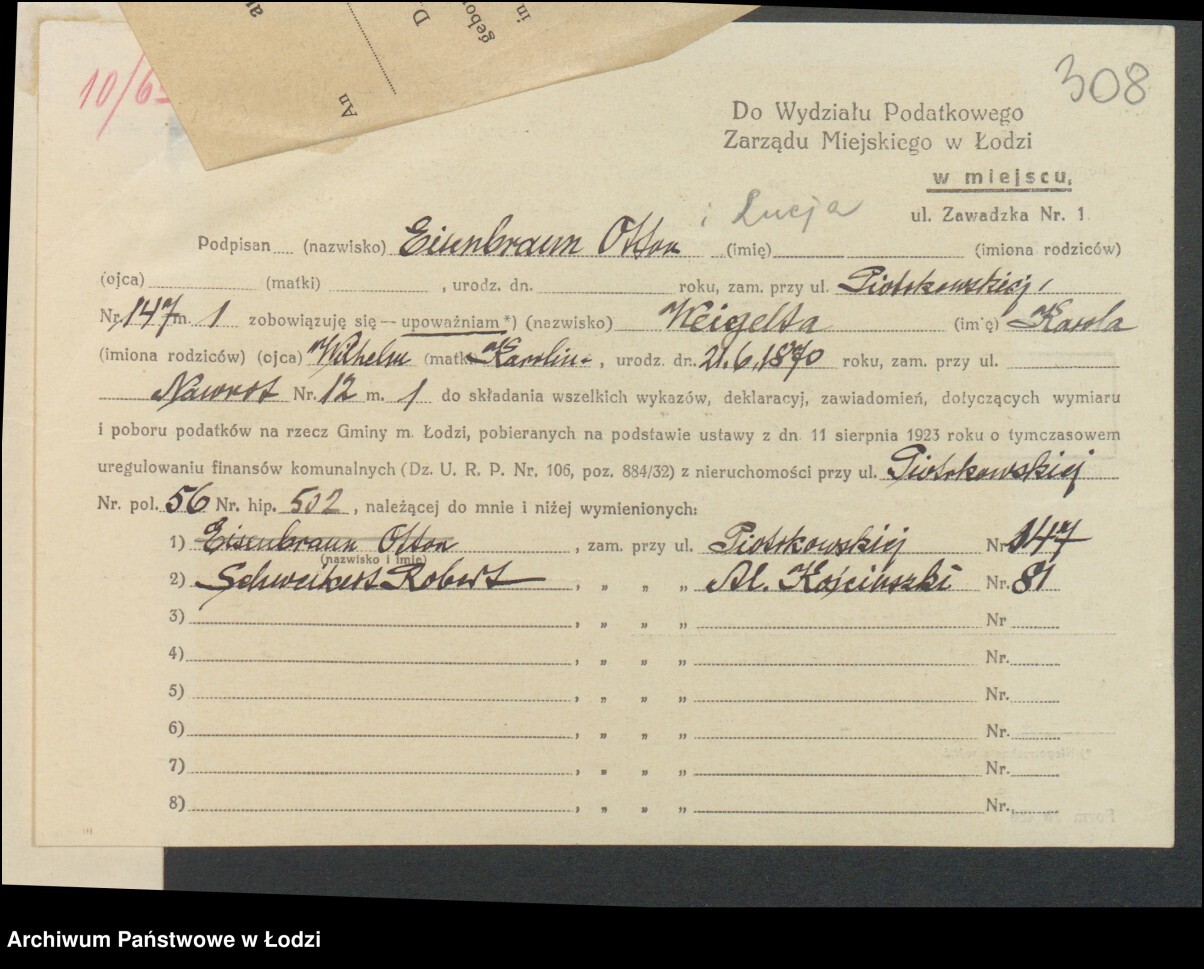 10/6
308
An
D.
in
gebo
Do Wydziału Podatkowego
Zarządu Miejskiego w Łodzi
w miejscu,
ul. Zawadzka Nr. 1.
i Lucja
Podpisan (nazwisko) Eisenbraun Otton (imię) (imiona rodziców)
(ojca) (matki) , urodz. dn. roku, zam. przy ul. Piotrkowskiej,
Nr. 147 m. 1 zobowiązuję się — upoważniam *) (nazwisko) Weigelta (imię) Karola
(imiona rodziców) (ojca) Wilhelm (matki) Karolin , urodz. dn. 21.6.1870 roku, zam. przy ul.
Nawrot Nr. 12 m. 1 do składania wszelkich wykazów, deklaracyj, zawiadomień, dotyczących wymiaru
i poboru podatków na rzecz Gminy m. Łodzi, pobieranych na podstawie ustawy z dn. 11 sierpnia 1923 roku o tymczasowem
uregulowaniu finansów komunalnych (Dz. U. R. P. Nr. 106, poz. 884/32) z nieruchomości przy ul. Piotrkowskiej
Nr. pol. 56 Nr. hip. 502 , należącej do mnie i niżej wymienionych:
1) Eisenbraun Otton , zam. przy ul. Piotrkowskiej Nr. 147
(nazwisko i imię)
2) Schweikert Robert , „ „ „ Al. Kościuszki Nr. 81
3) , „ „ „ Nr
4) , „ „ „ Nr.
5) , „ „ „ Nr.
6) , „ „ „ Nr.
7) , „ „ „ Nr.
8) , „ „ „ Nr.
Archiwum Państwowe w Łodzi